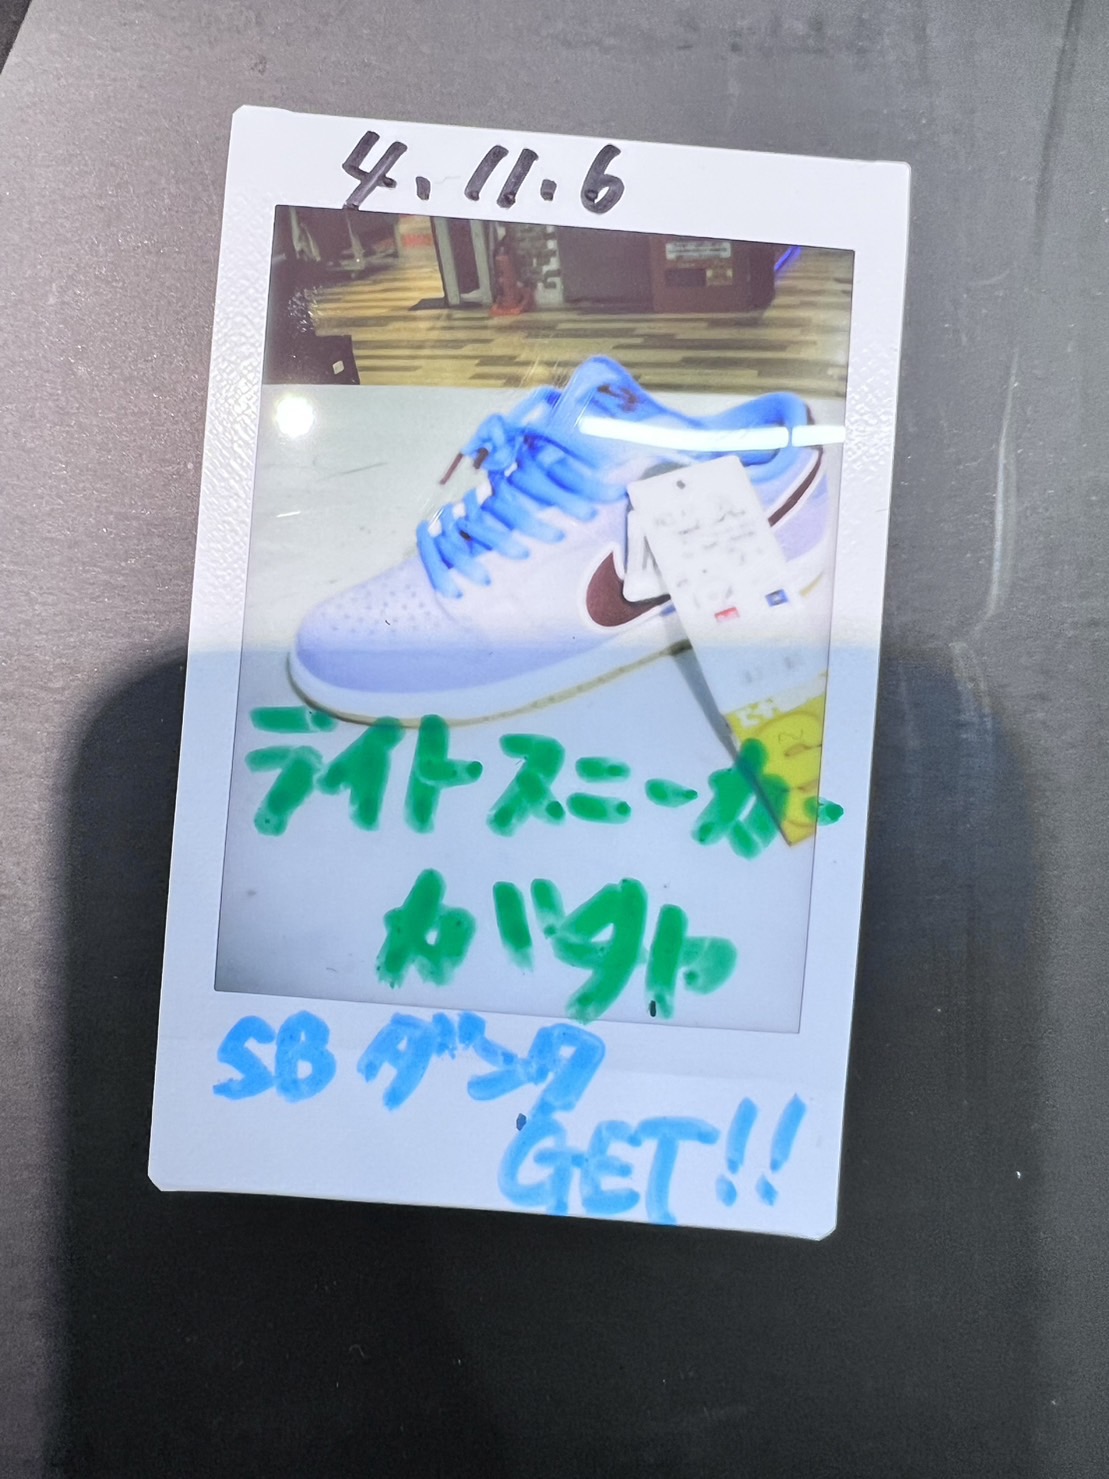 4.11.6
ライトスニーカー
ガバタヤ
SBダンク
GET!!